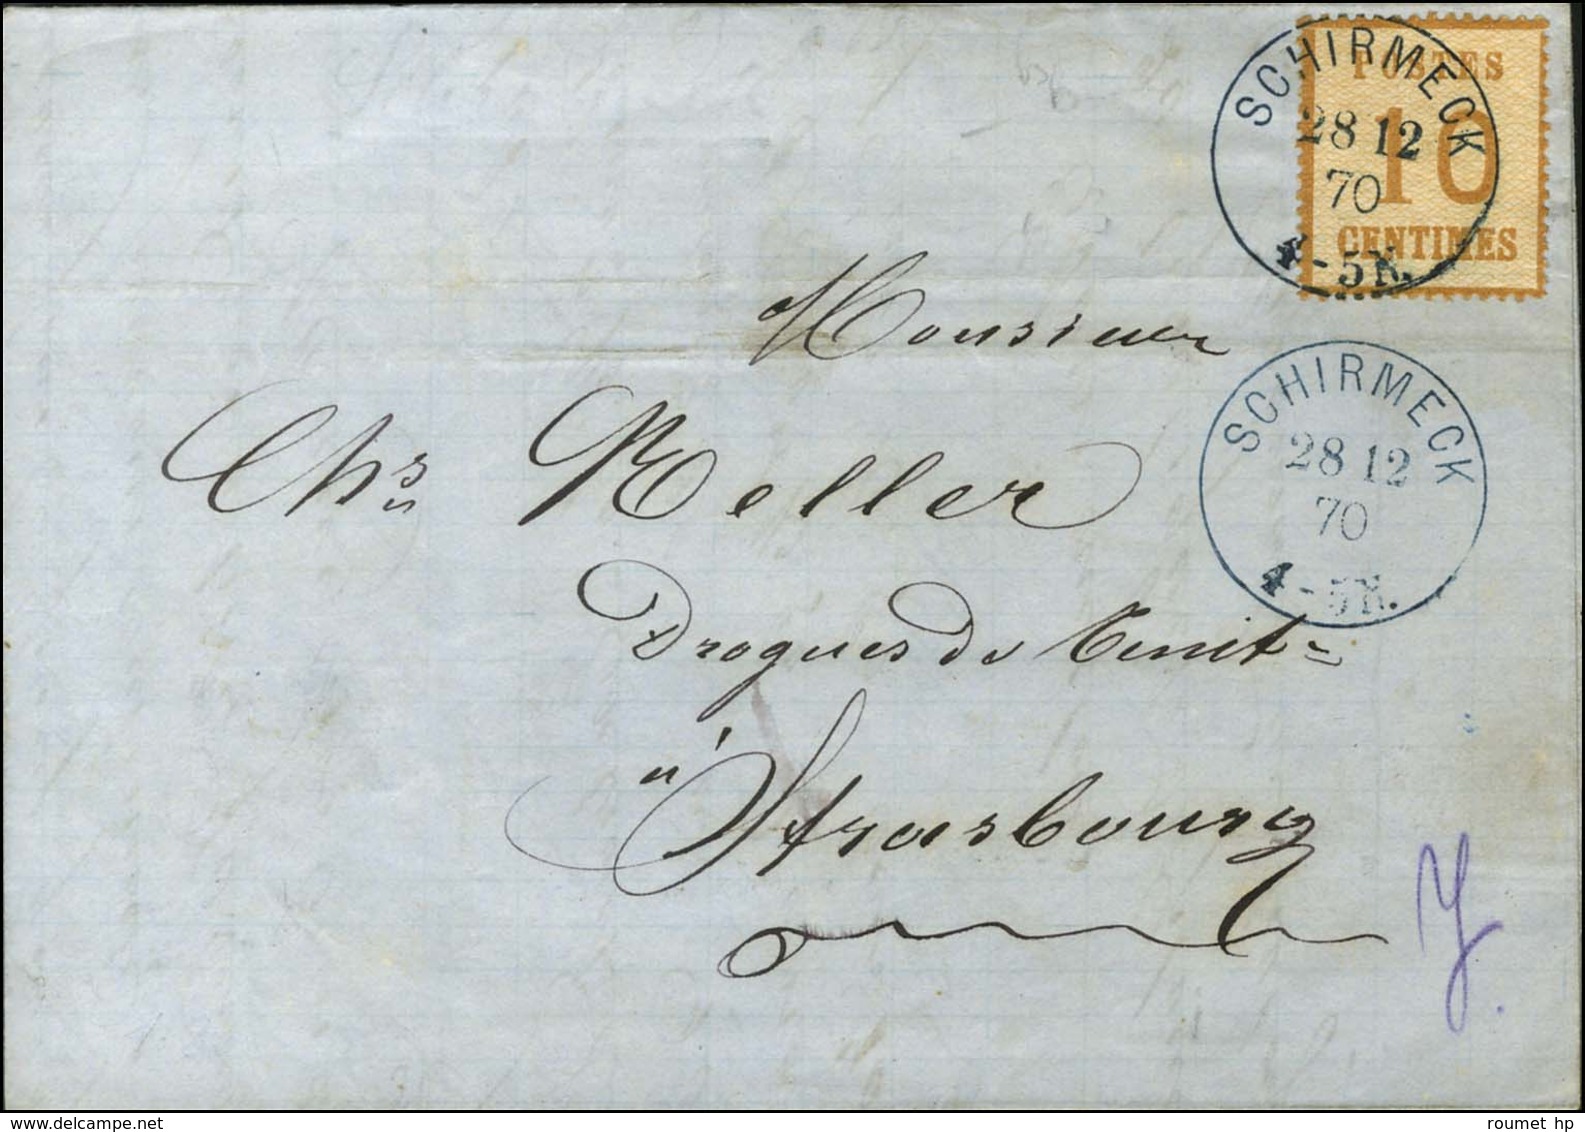 POSTES
10
CENTIMES
SCHIRMECK
28 12
70
4-5N.
Monsieur
Chs Keller
SCHIRMECK
28 12
70
4-5N.
Drogues de
à Strasbourg
roumet hp